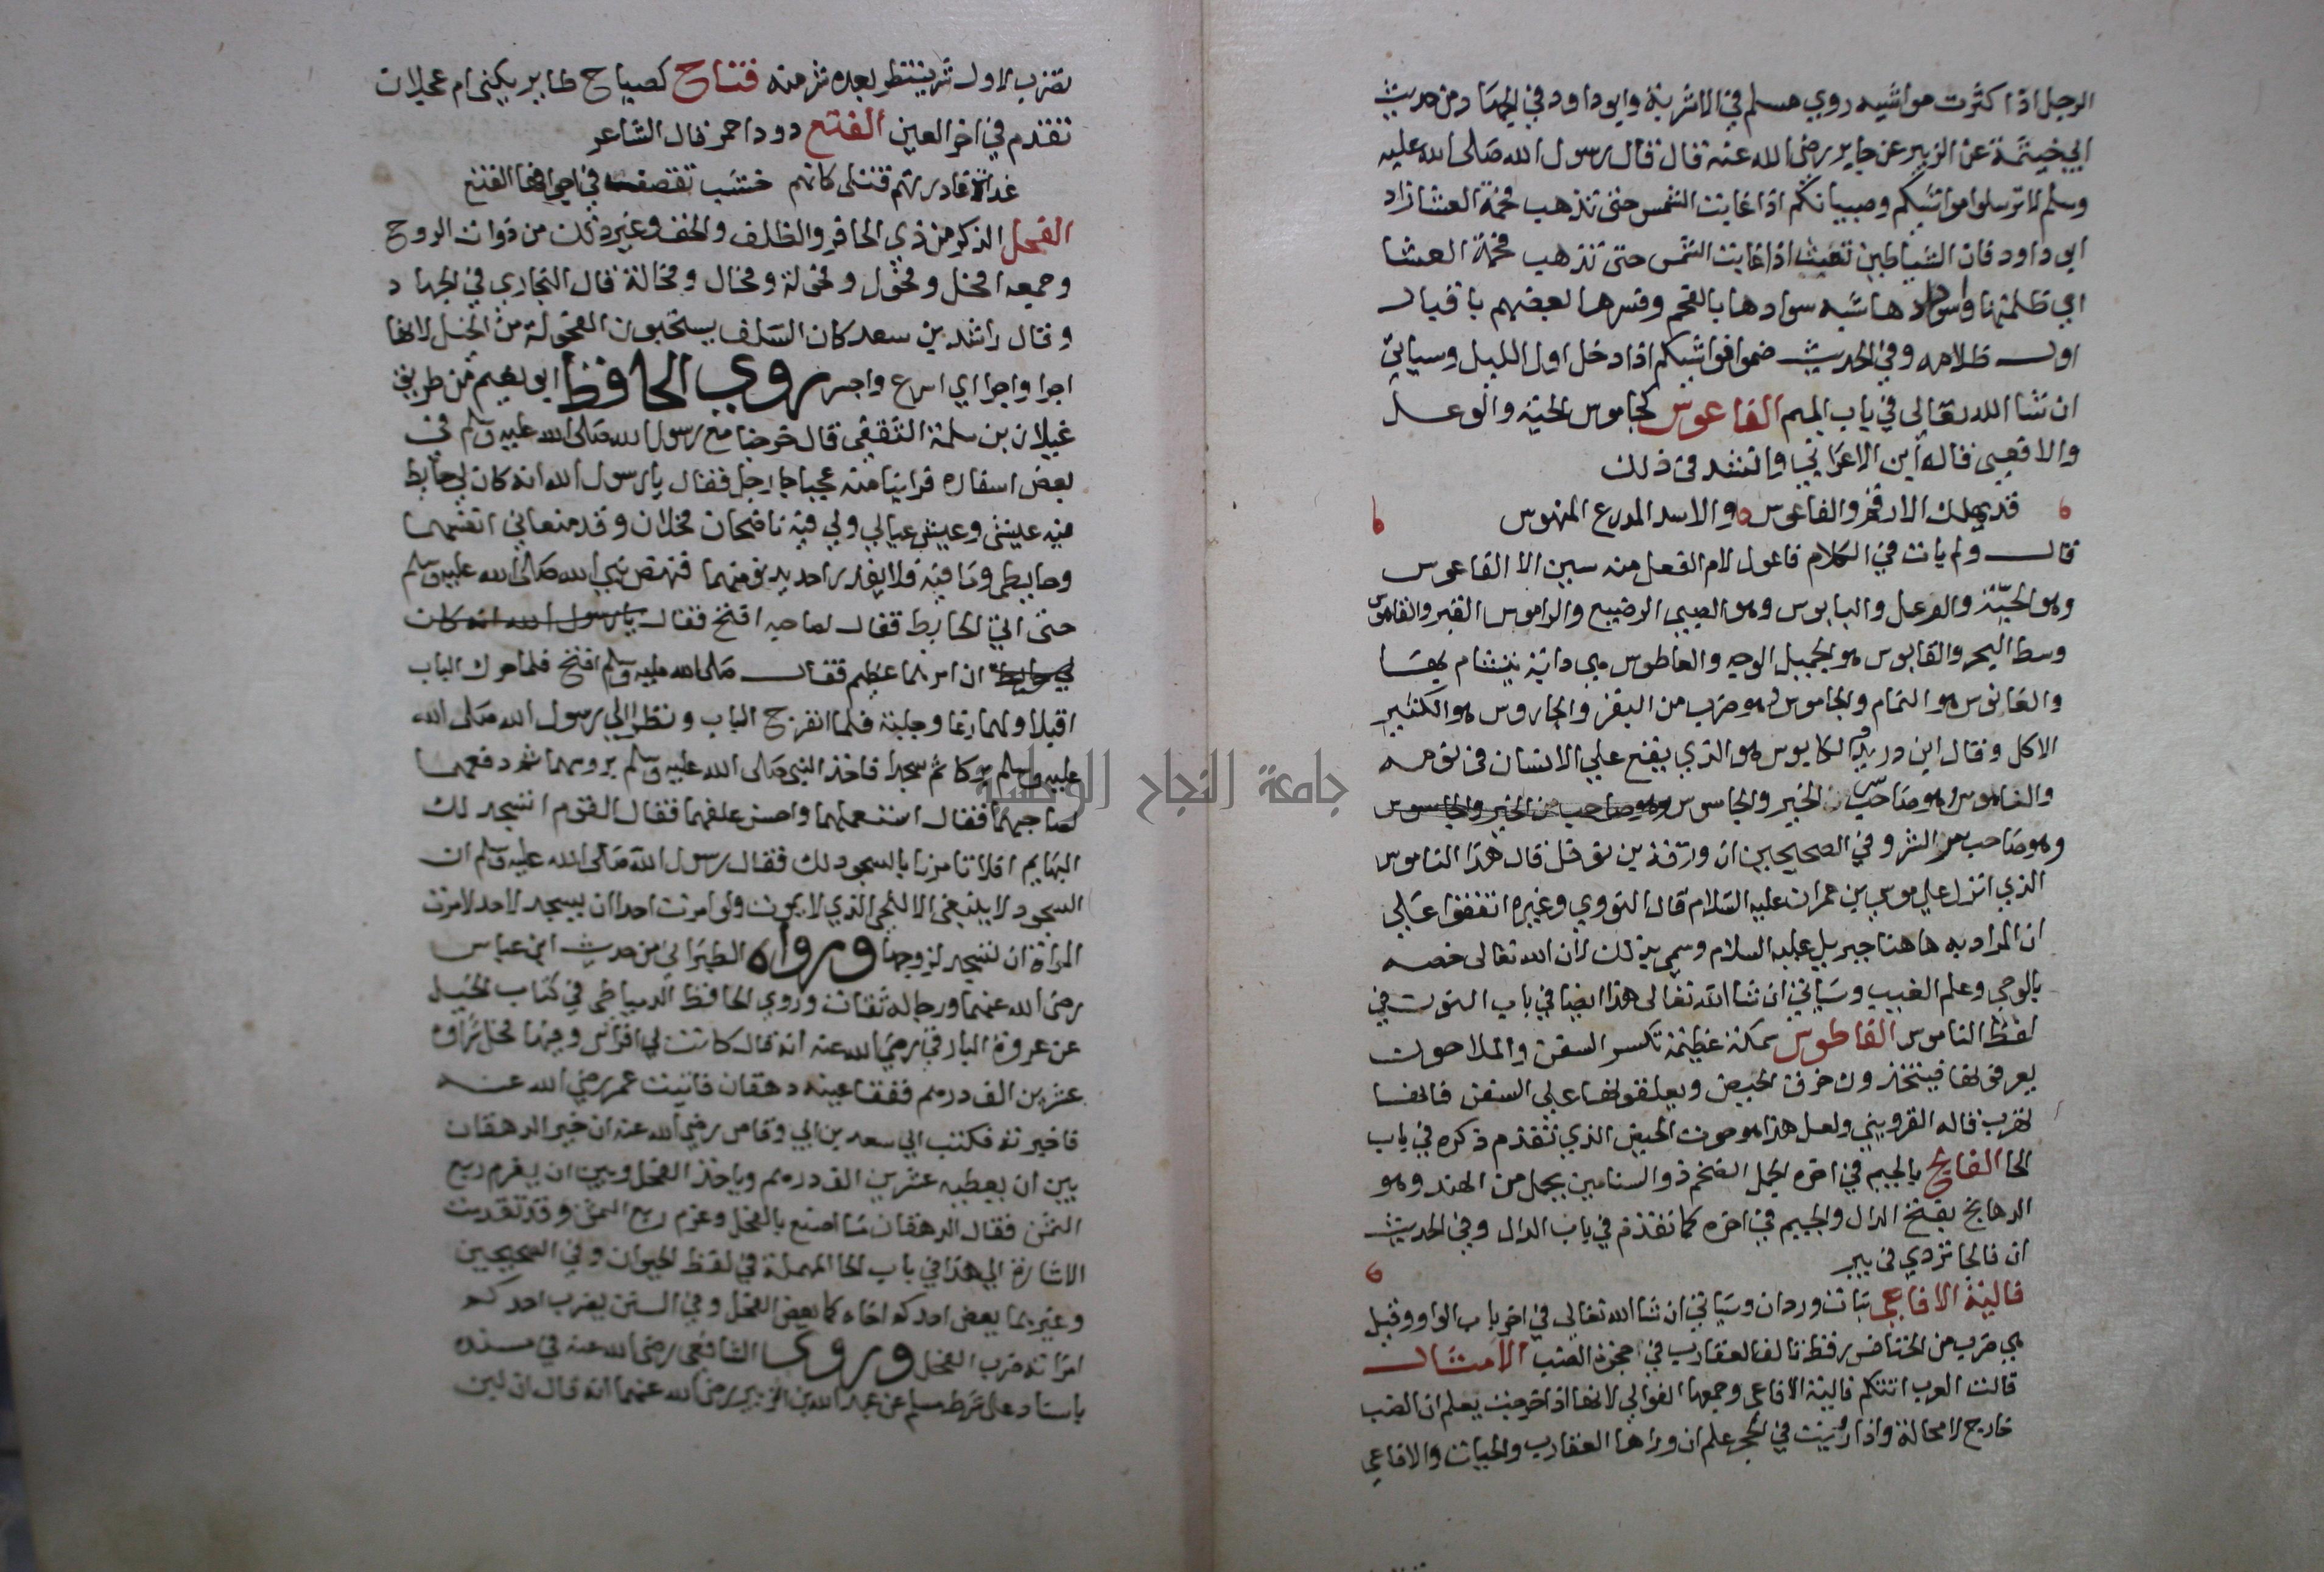 الرجل اذا كثرت مواشيه روي مسلم في الاشربة وابو داود في الجهاد من حديث
ابي خيثمة عن الزبير عن جابر رضي الله عنه قال قال رسول الله صلى الله عليه
وسلم لا ترسلوا مواشيكم وصبيانكم اذا غابت الشمس حتى تذهب فحمة العشا زاد
ابو داود فان الشياطين تعبث اذا غابت الشمس حتى تذهب فحمة العشا
اي ظلمتها وسوادها شبه سوادها بالفحم وفسرها بعضهم باقبال
اول ظلامه وفي الحديث ضموا فواشيكم اذا دخل اول الليل وسياتي
ان شا الله تعالى في باب الميم الفاعوس كجاموس الحية والوعل
والافعى قاله ابن الاعرابي وانشد في ذلك
قد يهلك الارقم والفاعوس والاسد المدرع المنهوس
قال ولم يات في الكلام فاعول لام الفعل منه سين الا الفاعوس
وهو الحية والوعل والبابوس وهو الصبي الرضيع والراموس القبر والقاموس
وسط البحر والقابوس هو الجميل الوجه والعاطوس هي دابة يتشام بها
والفانوس هو النمام والجاموس وهو ضرب من البقر والجاروس هو الكثير
الاكل وقال ابن دريد والكابوس هو الذي يقع علي الانسان في نومه
والناموس وهو صاحب سر الخير والجاسوس وهو صاحب سر الخير والجاسوس
وهو صاحب سر الشر وفي الصحيحين ان ورقة بن نوفل قال هذا الناموس
الذي انزل علي موسي بن عمران عليه السلام قال النووي وغيره اتفقوا على
ان المراد به هاهنا جبريل عليه السلام وسمي بذلك لان الله تعالى خصه
بالوحي وعلم الغيب وسياتي ان شا الله تعالى هذا ايضا في باب النون في
لفظ الناموس الفاطوس سمكة عظيمة تكسر السفن والملاحون
يعرفونها فيتخذون خرق الحيض ويعلقونها على السفن فانها
تهرب قاله القزويني ولعل هذا هو حوت الحيض الذي تقدم ذكره في باب
الحا الفالج بالجيم في اخره الجمل الضخم ذو السنامين يحمل من الهند وهو
الدهانج بفتح الدال والجيم في اخره كما تقدم في باب الدال وفي الحديث
ان فالجا تردي في بير
فالية الافاعي بنات وردان وسياتي ان شا الله تعالى في اخر باب الواو وقيل
هي ضرب من الخنافس رقط تالف العقارب في اجحرة الضب الامثال
قالت العرب اتتكم فالية الافاعي وجمعها الفوالي لانها اذا خرجت يعلم ان الضب
خارج لا محالة واذا رؤيت في الجحر علم ان وراها العقارب والحيات والافاعي
تضرب لاول شر ينتظر بعده شر منه فتاح كصياح طاير يكنى ام عجلان
تقدم في اخر العين الفتع دود احمر قال الشاعر
غداة غادرتهم قتلى كانهم خشب تقصف في اجوافها الفتع
الفحل الذكر من ذي الحافر والظلف والخف وغير ذلك من ذوات الروح
وجمعه افحل وفحول وفحولة وفحال وفحالة قال البخاري في الجهاد
وقال راشد بن سعد كان السلف يستحبون الفحولة من الخيل لانها
اجرا واجرا اي اسرع واجسر روي الحافظ ابو نعيم من طريق
غيلان بن سلمة الثقفي قال خرجنا مع رسول الله صلى الله عليه وسلم في
بعض اسفاره فراينا منه عجبا جا رجل فقال يا رسول الله انه كان لي حايط
فيه عيشي وعيش عيالي ولي فيه ناضحان فحلان وقد منعاني انفسهما
وحايطي وما فيه فلا يقدر احد يدنو منهما فنهض نبي الله صلى الله عليه وسلم
حتى اتي الحايط فقال لصاحبه افتح فقال يا رسول الله انه كان
لي حايط ان امرهما عظيم فقال صلى الله عليه وسلم افتح فلما حرك الباب
اقبلا ولهما رغا وجلبة فلما انفرج الباب ونظر الي رسول الله صلى الله
عليه وسلم بركا ثم سجدا فاخذ النبي صلى الله عليه وسلم بروسهما ثم دفعهما
لصاحبهما فقال استعملهما واحسن علفهما فقال القوم اتسجد لك
البهايم افلا تامرنا بالسجود لك فقال رسول الله صلى الله عليه وسلم ان
السجود لا ينبغي الا للحي الذي لا يموت ولو امرت احدا ان يسجد لاحد لامرت
المراة ان تسجد لزوجها ورواه الطبراني من حديث ابن عباس
رضي الله عنهما ورجاله ثقات وروي الحافظ الدمياطي في كتاب الخيل
عن عروة البارقي رضي الله عنه انه قال كانت لي افراس وفيها فحل شراوه
عشرين الف درهم ففقا عينه دهقان فاتيت عمر رضي الله عنه
فاخبرته فكتب الي سعد بن ابي وقاص رضي الله عنه ان خير الدهقان
بين ان يعطيه عشرين الف درهم وياخذ الفحل وبين ان يغرم ربع
الثمن فقال الدهقان ما اصنع بالفحل وغرم ربع الثمن وقد تقدمت
الاشارة الي هذا في باب الحا المهملة في لفظ الحيوان وفي الصحيحين
وغيرهما يعض احدكم اخاه كما يعض الفحل وفي السنن يضرب احدكم
امراته ضرب الفحل وروى الشافعي رضي الله عنه في مسنده
باسناد على شرط مسلم عن عبد الله بن الزبير رضي الله عنهما انه قال ان لبن
جامعة النجاح الوطنية